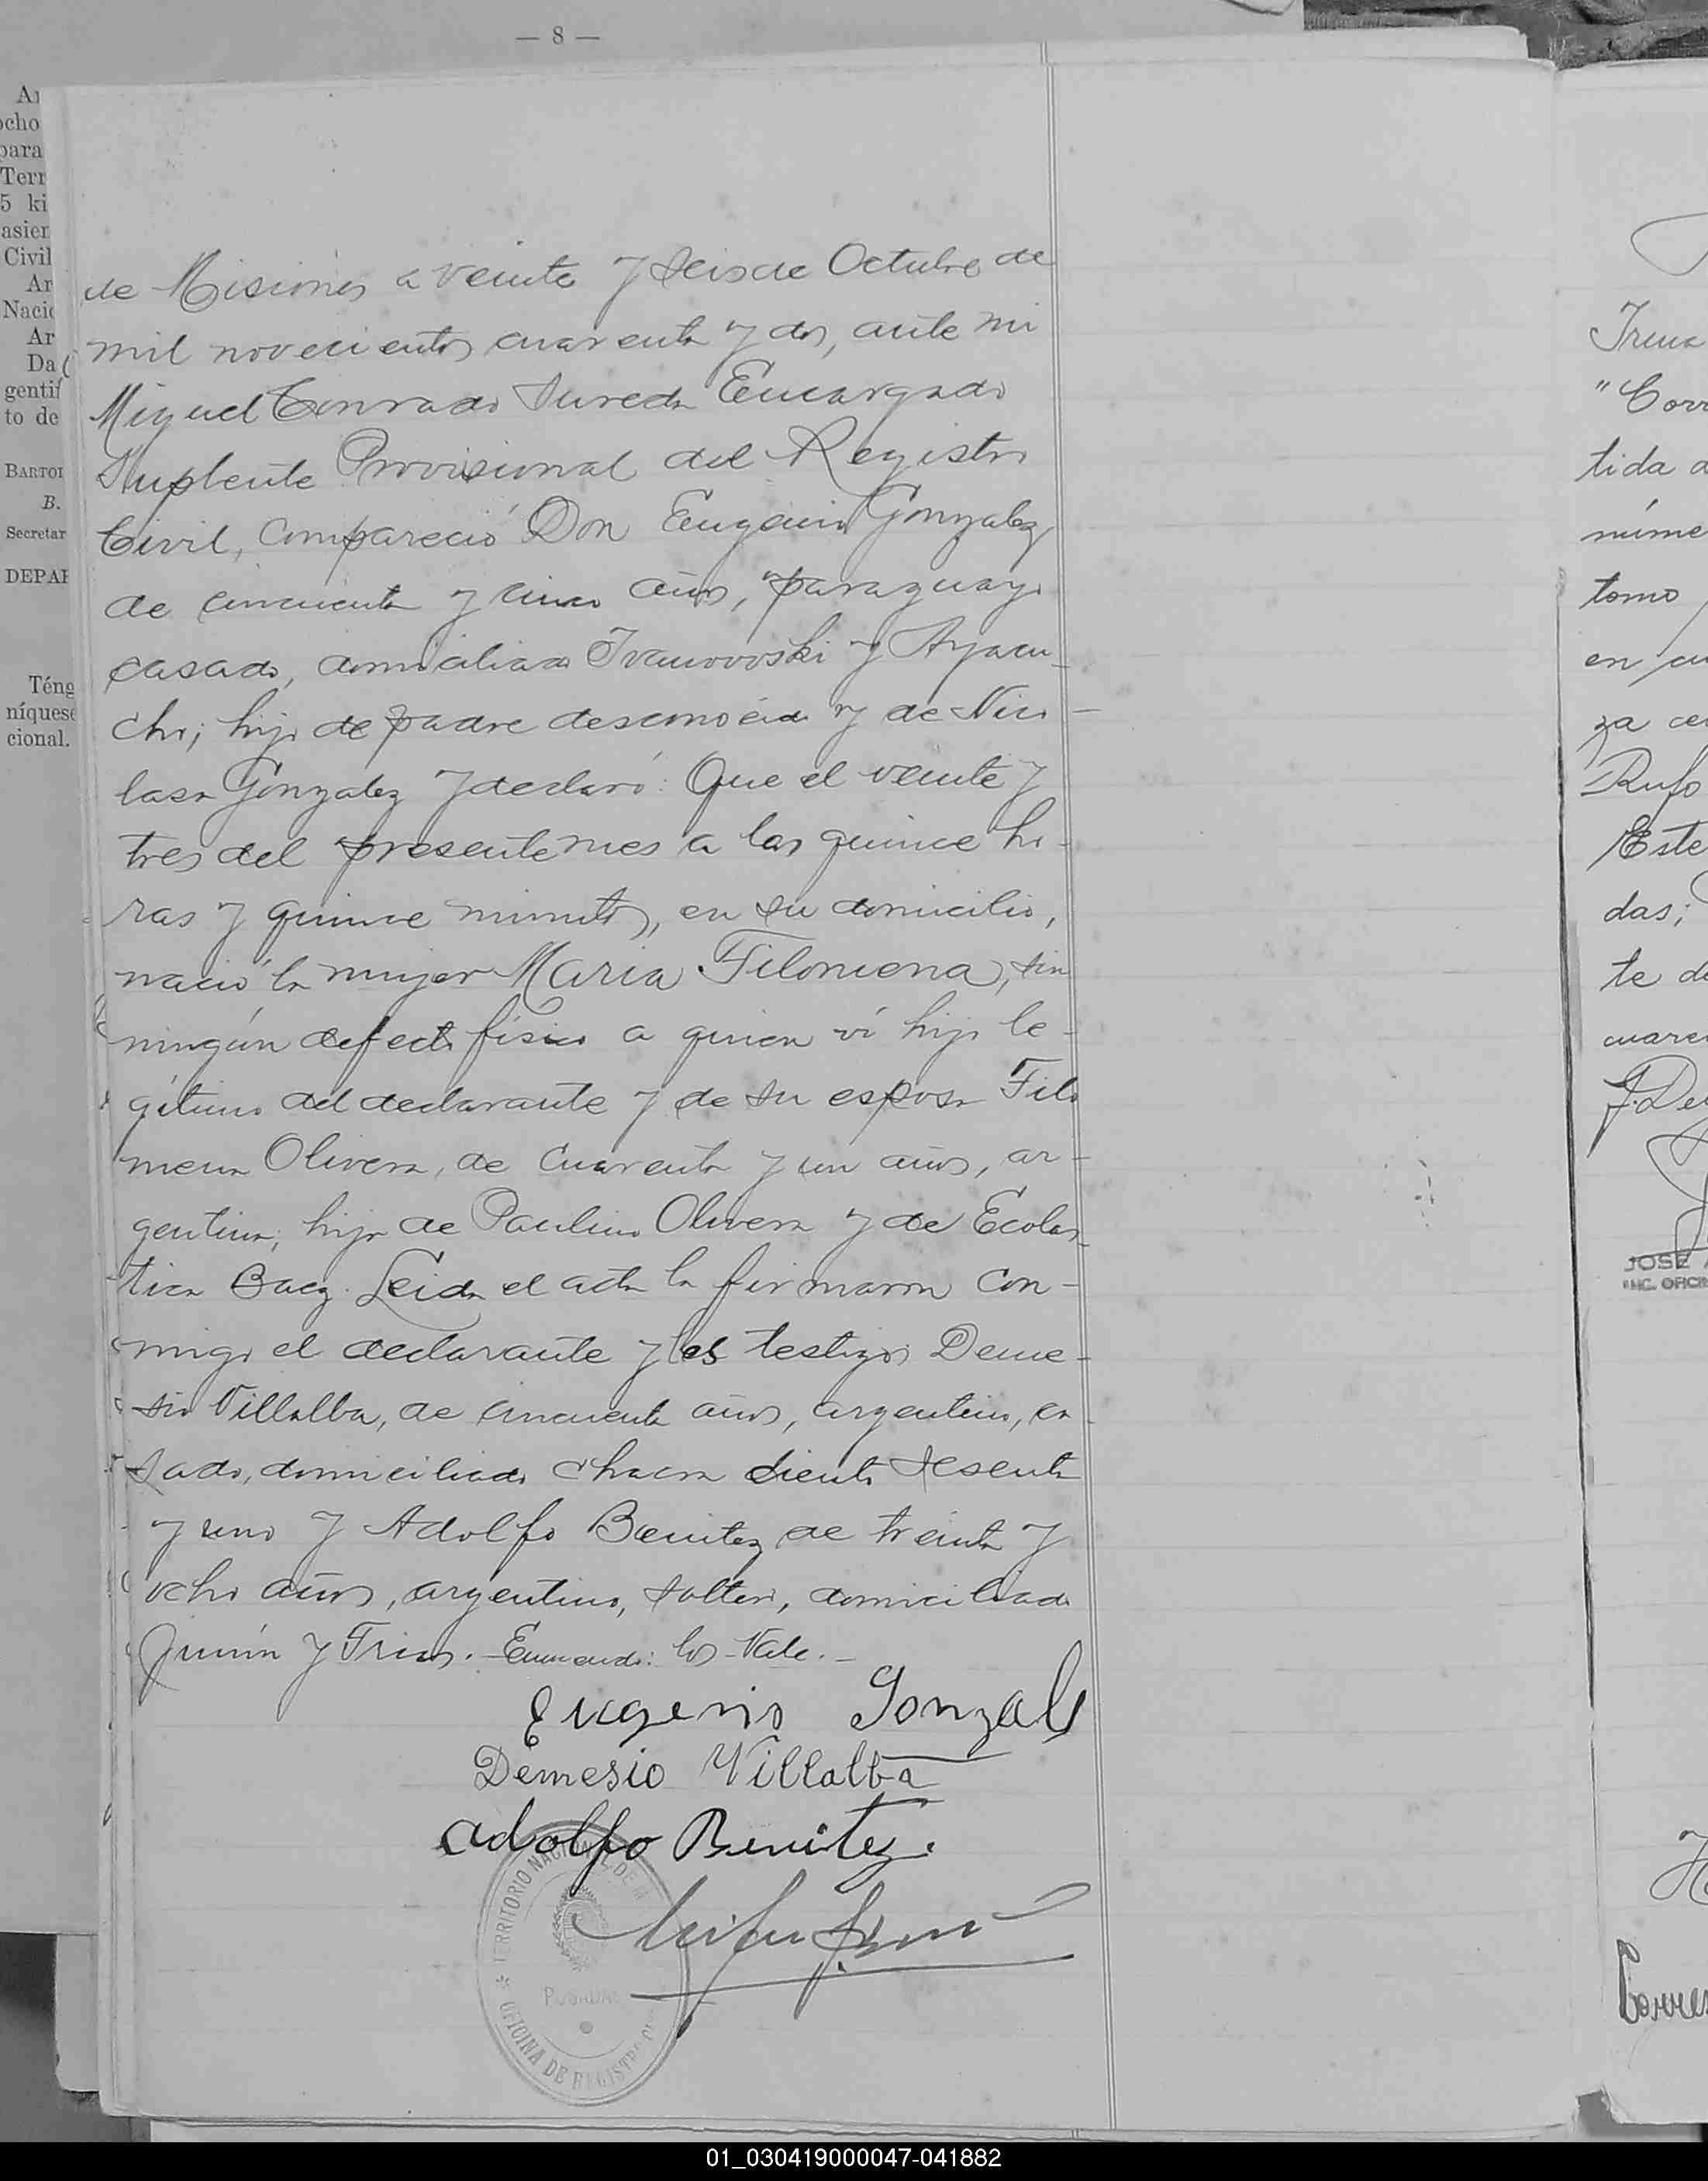 — 8 —
Ar
ocho
para
Terr
5 ki
asien
Civil
Ar
Nacio
Ar
Da
gentil
to de
BARTOL
B.
Secretar
DEPAR
Téng
níquese
cional.
de Misiones a veinte y seis de Octubre de
mil novecientos cuarenta y dos, ante mi
Miguel Conrado Sureda Encargado
Suplente Provisional del Registro
Civil, compareció Don Eugenio Gonzalez
de cincuenta y cinco años, paraguayo
casado, domiciliado Ivanovoski y Ayacu-
cho; hijo de padre desconocido y de Nico-
lasa Gonzalez y declaró: Que el veinte y
tres del presente mes a las quince ho-
ras y quince minutos, en su domicilio,
nació la mujer Maria Filomena, sin
ningún defecto físico a quien ví hijo le-
gítimo del declarante y de su esposa Filo
mena Olivera, de cuarenta y un años, ar-
gentina; hija de Paulino Olivera y de Ecolas-
tica Baez. Leida el acta la firmaron con-
migo el declarante y los testigos Deme-
sio Villalba, de cincuenta años, argentino, ca-
sado, domiciliado chacra ciento sesenta
y uno y Adolfo Benitez de treinta y
ocho años, argentino, soltero, domiciliado
Junín y Frias. - Enmendo: los - Vale. -
Eugenio Gonzalez
Demesio Villalba
Adolfo Benitez.
TERRITORIO NACIONAL DE M
POSADAS
OFICINA DE REGISTRO
Irma
"Corr
tida d
núme
tomo
en cu
za ce
Rufo
Este
das;
te de
cuare
J. De
JOSE
ENC. OFICIN
Corres
01_030419000047-041882